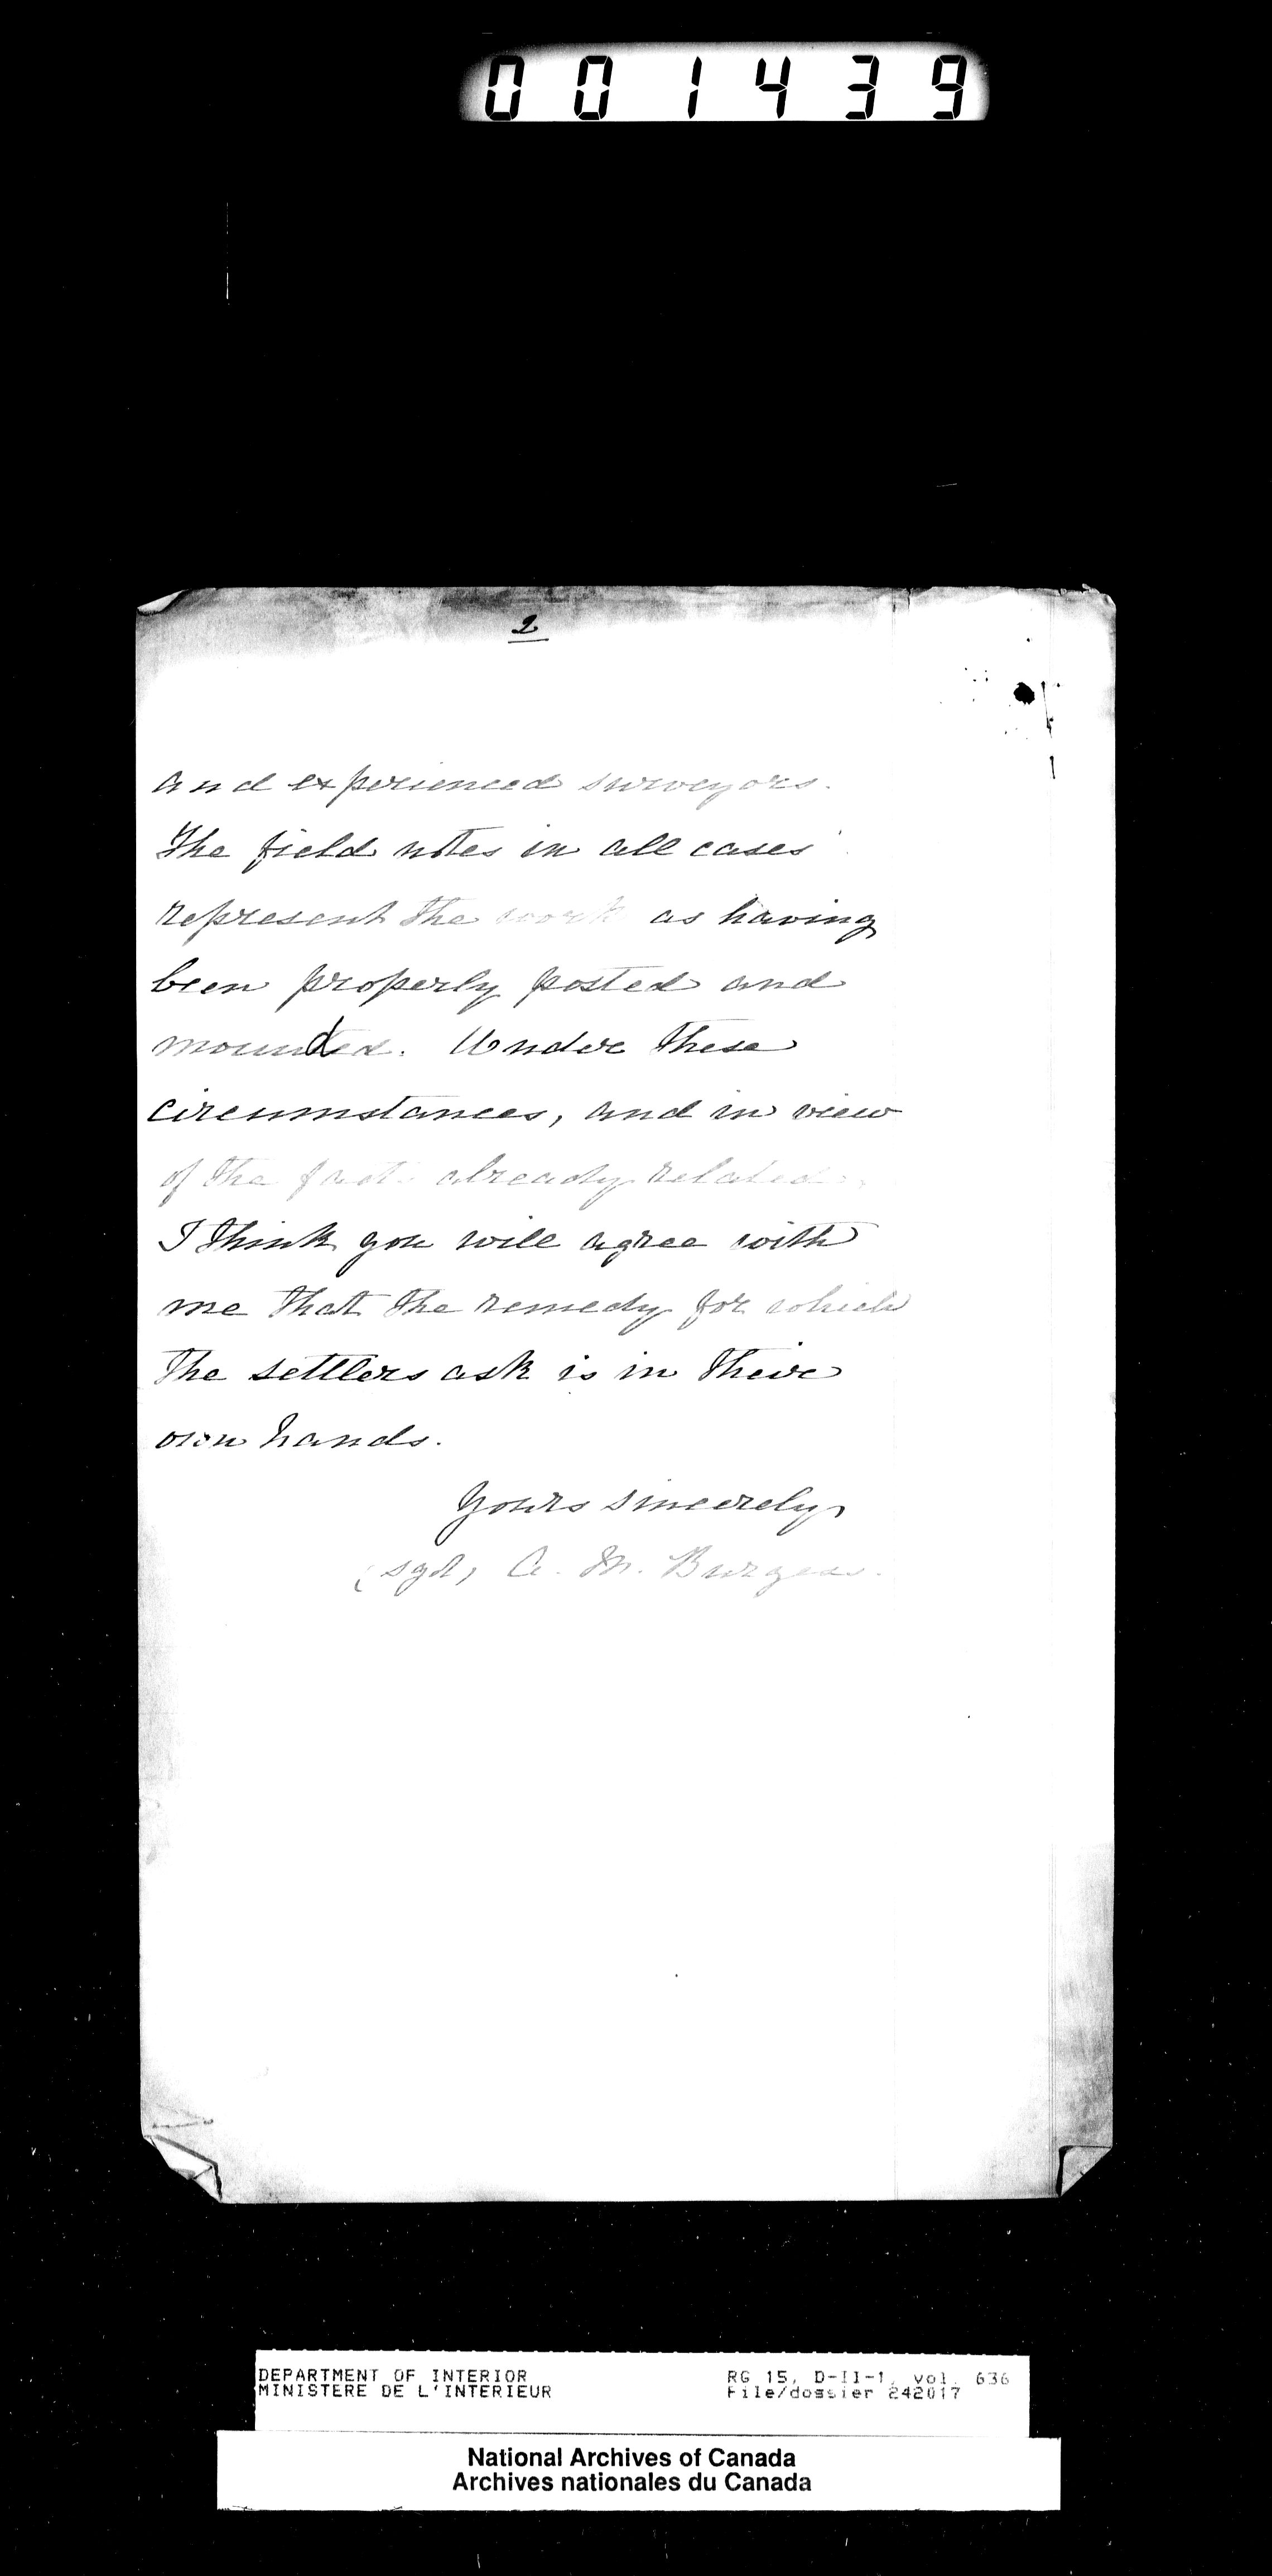 001439
2
and experienced surveyors.
The field notes in all cases
represent the work as having
been properly posted and
mounded. Under these
circumstances, and in view
of the facts already related,
I think you will agree with
me that the remedy for which
the settlers ask is in their
own hands.
Yours sincerely,
(sgd) A. M. Burgess.
DEPARTMENT OF INTERIOR
MINISTERE DE L'INTERIEUR
RG 15, D-II-1, vol. 636
File/dossier 242017
National Archives of Canada
Archives nationales du Canada